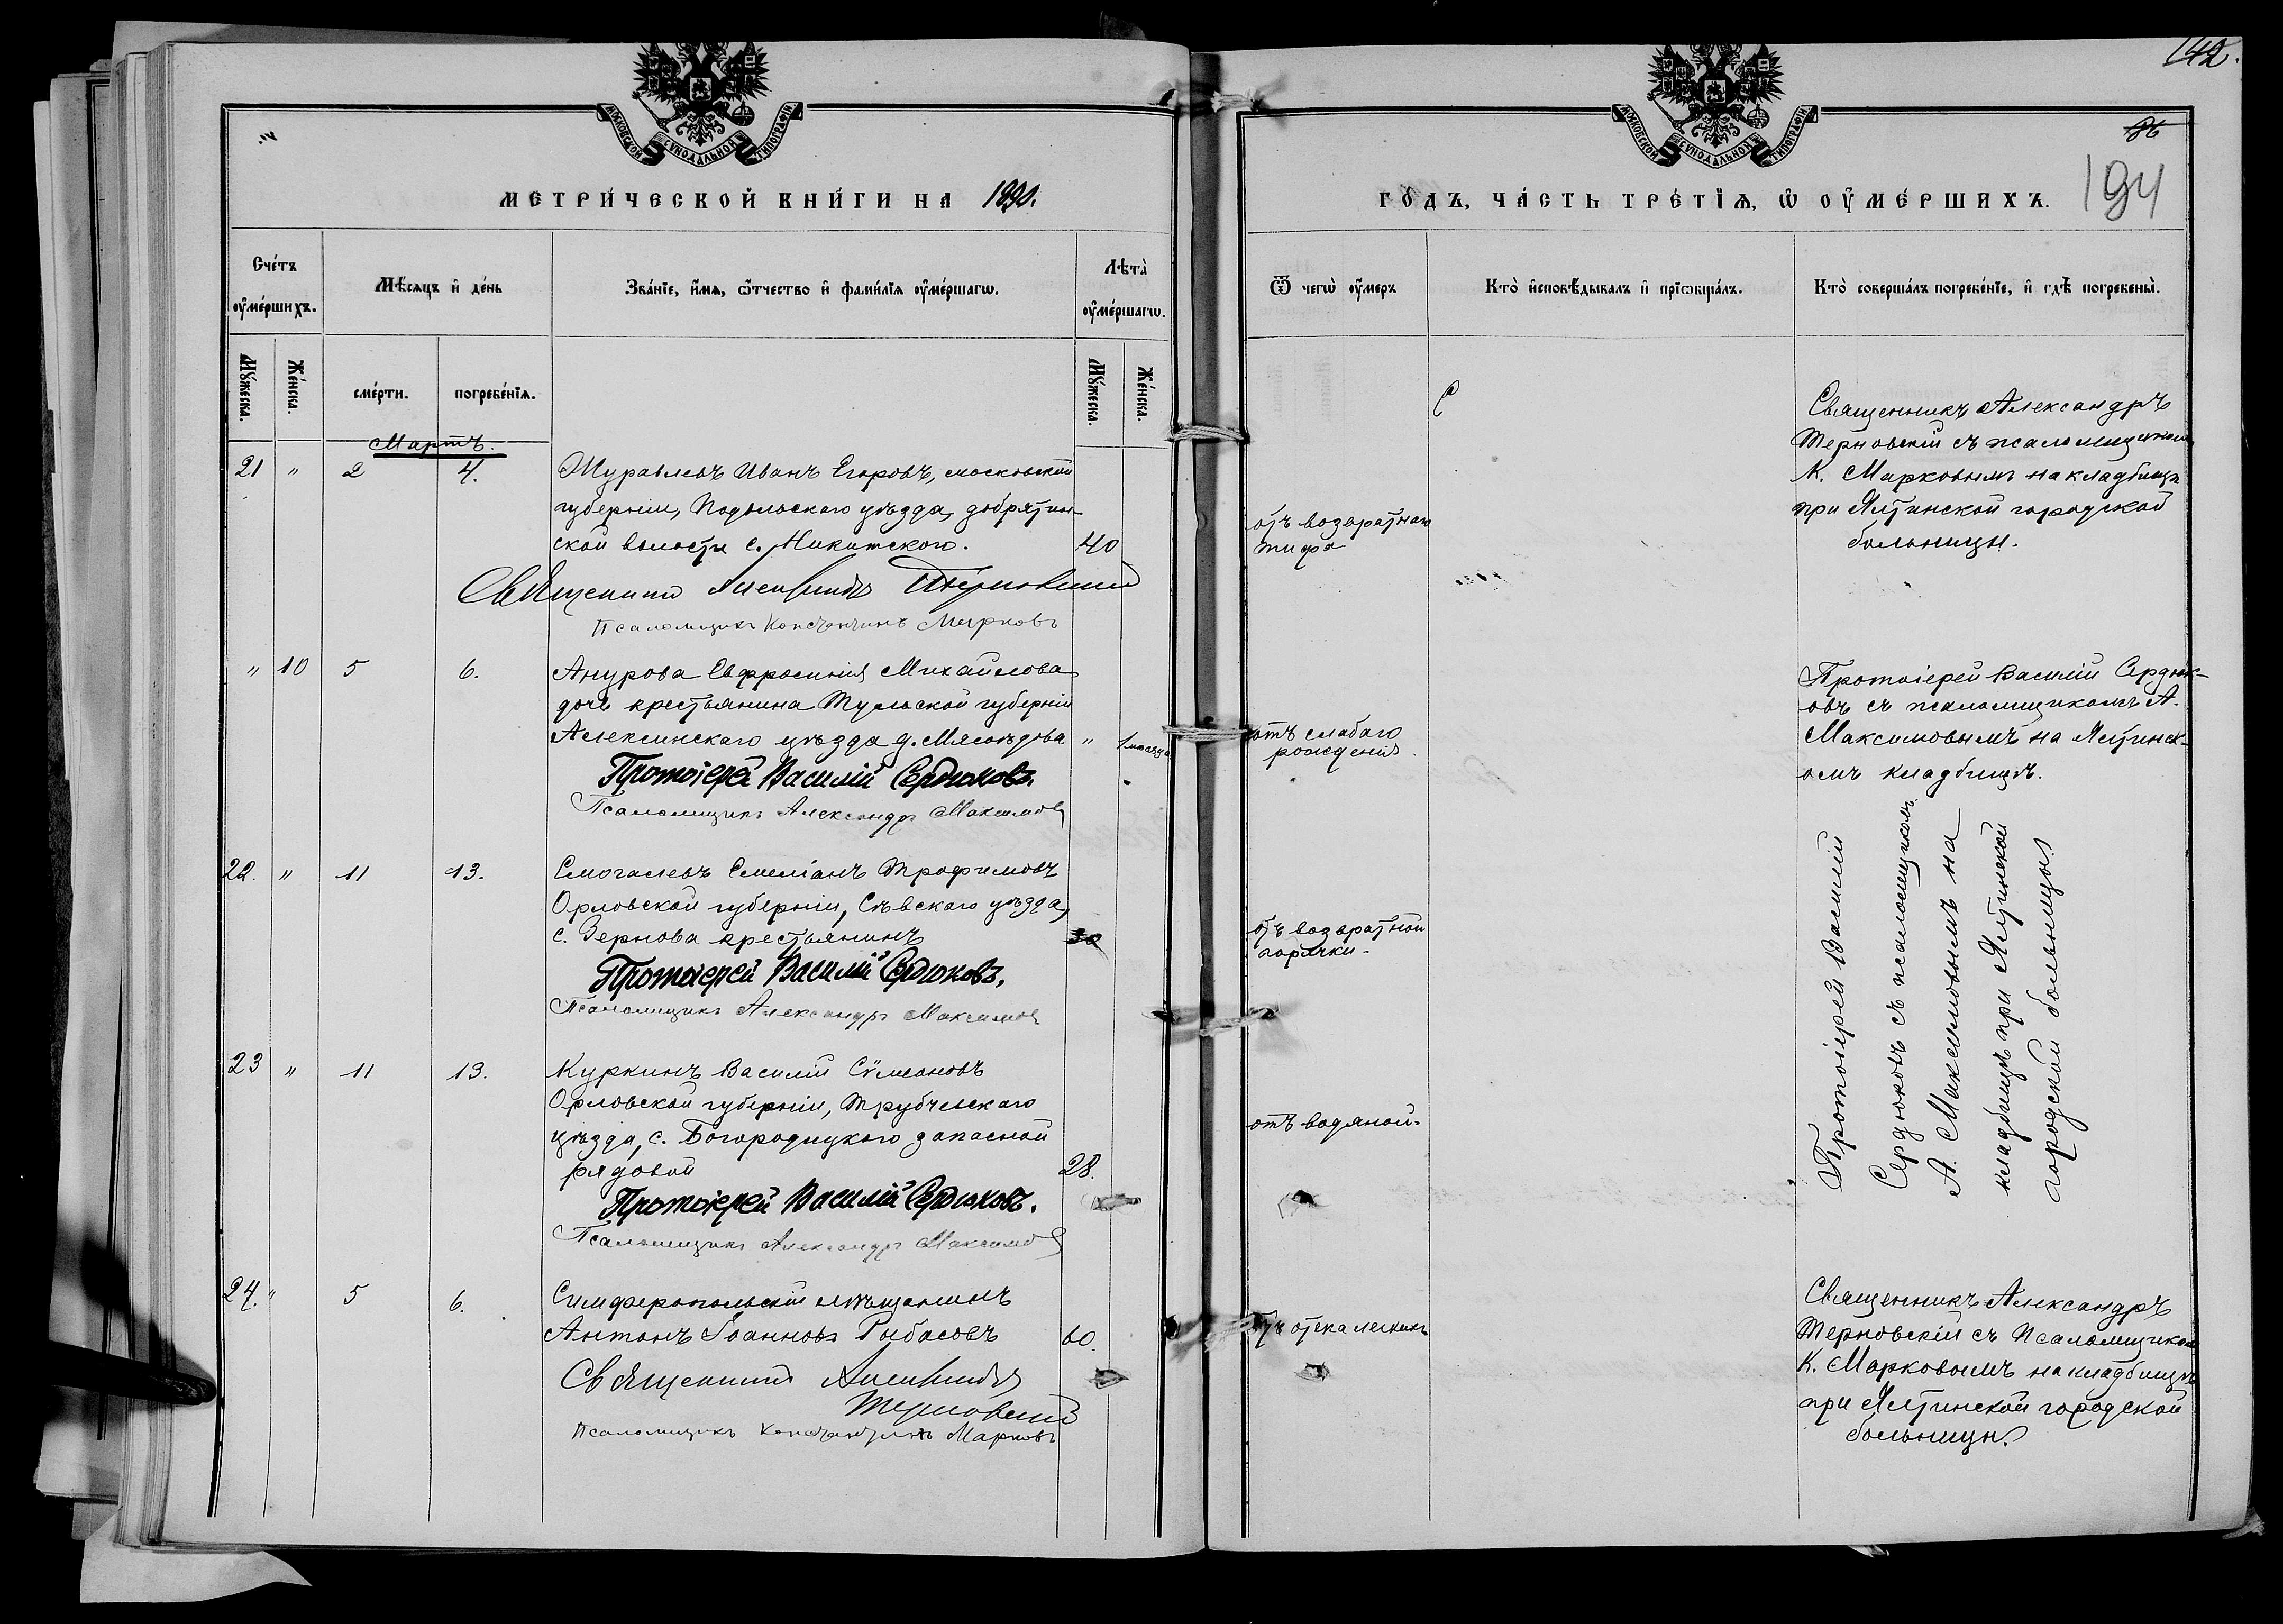 МОСКОВСКОЙ СѴНОДАЛЬНОЙ ТИПОГРАФІИ
МЕТРИ́ЧЕСКОЙ КНИ́ГИ НА 1890.
Сче́тъ оуме́ршихъ.
Мѣ́сяцъ и де́нь
Зва́нїе, и́мя, ѻ́тчество и фами́лїя оуме́ршагѡ.
Лѣта̀ оуме́ршагѡ.
Мꙋ́жеска.
Же́нска.
сме́рти.
погребе́нїя.
Мꙋ́жеска.
Же́нска.
Мартъ.
21 " 2 4. Журавлевъ Иванъ Егоровъ, московской
губерніи, Подольскаго уѣзда, добрятин-
ской волости с. Никитского. 40
Священникъ Александръ Терновскій
Псаломщикъ Константинъ Марковъ
" 10 5 6. Анурова Евфросинія Михайлова
дочь крестьянина Тульской губерніи
Алексинскаго уѣзда д. Мясоѣдова " 1 мѣсяца
Протоіерей Василій Сердюковъ.
Псаломщикъ Александръ Максимовъ
22. " 11 13. Смогалевъ Емеліанъ Трофимовъ
Орловской губерніи, Сѣвскаго уѣзда,
с. Зернова крестьянинъ 30
Протоіерей Василій Сердюковъ.
Псаломщикъ Александръ Максимовъ
23 " 11 13. Куркинъ Василій Сѷмеоновъ
Орловской губерніи, Трубчевскаго
уѣзда, с. Богородицкого запасной
рядовой 28.
Протоіерей Василій Сердюковъ.
Псаломщикъ Александръ Максимовъ
24. " 5 6. Симферопольскій мѣщанинъ
Антонъ Іоанновъ Рыбасовъ 60.
Священникъ Александръ
Терновскій
Псаломщикъ Константинъ Марковъ
142.
МОСКОВСКОЙ СѴНОДАЛЬНОЙ ТИПОГРАФІИ
86
194
ГО́ДЪ, ЧА́СТЬ ТРЕ́ТЇѦ, Ѡ ОУМЕ́РШИХЪ.
Ѿ чегѡ̀ оу́меръ
Кто̀ и҆сповѣ́дывалъ и҆ прїѡбща́лъ.
Кто̀ соверша́лъ погребе́нїе, и҆ гдѣ̀ погребены̀.
отъ возвратнаго
тифа
Священникъ Александръ
Терновскій съ псаломщикомъ
К. Марковымъ на кладбищѣ
при Ялтинской городской
больницы.
отъ слабаго
рожденія.
Протоіерей Василій Сердюк-
овъ съ псаломщикомъ А.
Максимовымъ на Ялтинск-
омъ кладбищѣ.
отъ возвратной
горячки.
отъ водяной.
Протоіерей Василій
Сердюковъ съ псаломщикомъ
А. Максимовымъ на
кладбищѣ при Ялтинской
городской больницы.
отъ отека легкихъ
Священникъ Александръ
Терновскій съ Псаломщикомъ
К. Марковымъ на кладбищѣ
при Ялтинской городской
больницы.